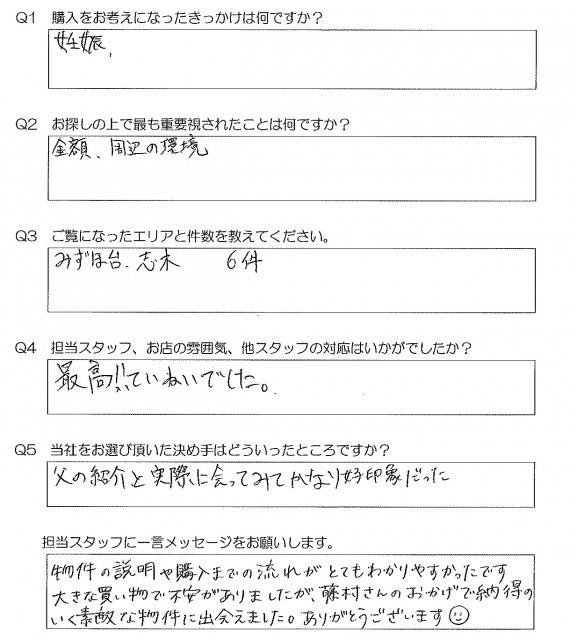 Q1 購入をお考えになったきっかけは何ですか？
妊娠、
Q2 お探しの上で最も重要視されたことは何ですか？
金額、周辺の環境
Q3 ご覧になったエリアと件数を教えてください。
みずほ台、志木 6件
Q4 担当スタッフ、お店の雰囲気、他スタッフの対応はいかがでしたか？
最高!!ていねいでした。
Q5 当社をお選び頂いた決め手はどういったところですか？
父の紹介と実際に会ってみてかなり好印象だった
担当スタッフに一言メッセージをお願いします。
物件の説明や購入までの流れがとてもわかりやすかったです
大きな買い物で不安がありましたが、藤村さんのおかげで納得の
いく素敵な物件に出会えました。ありがとうございます☺